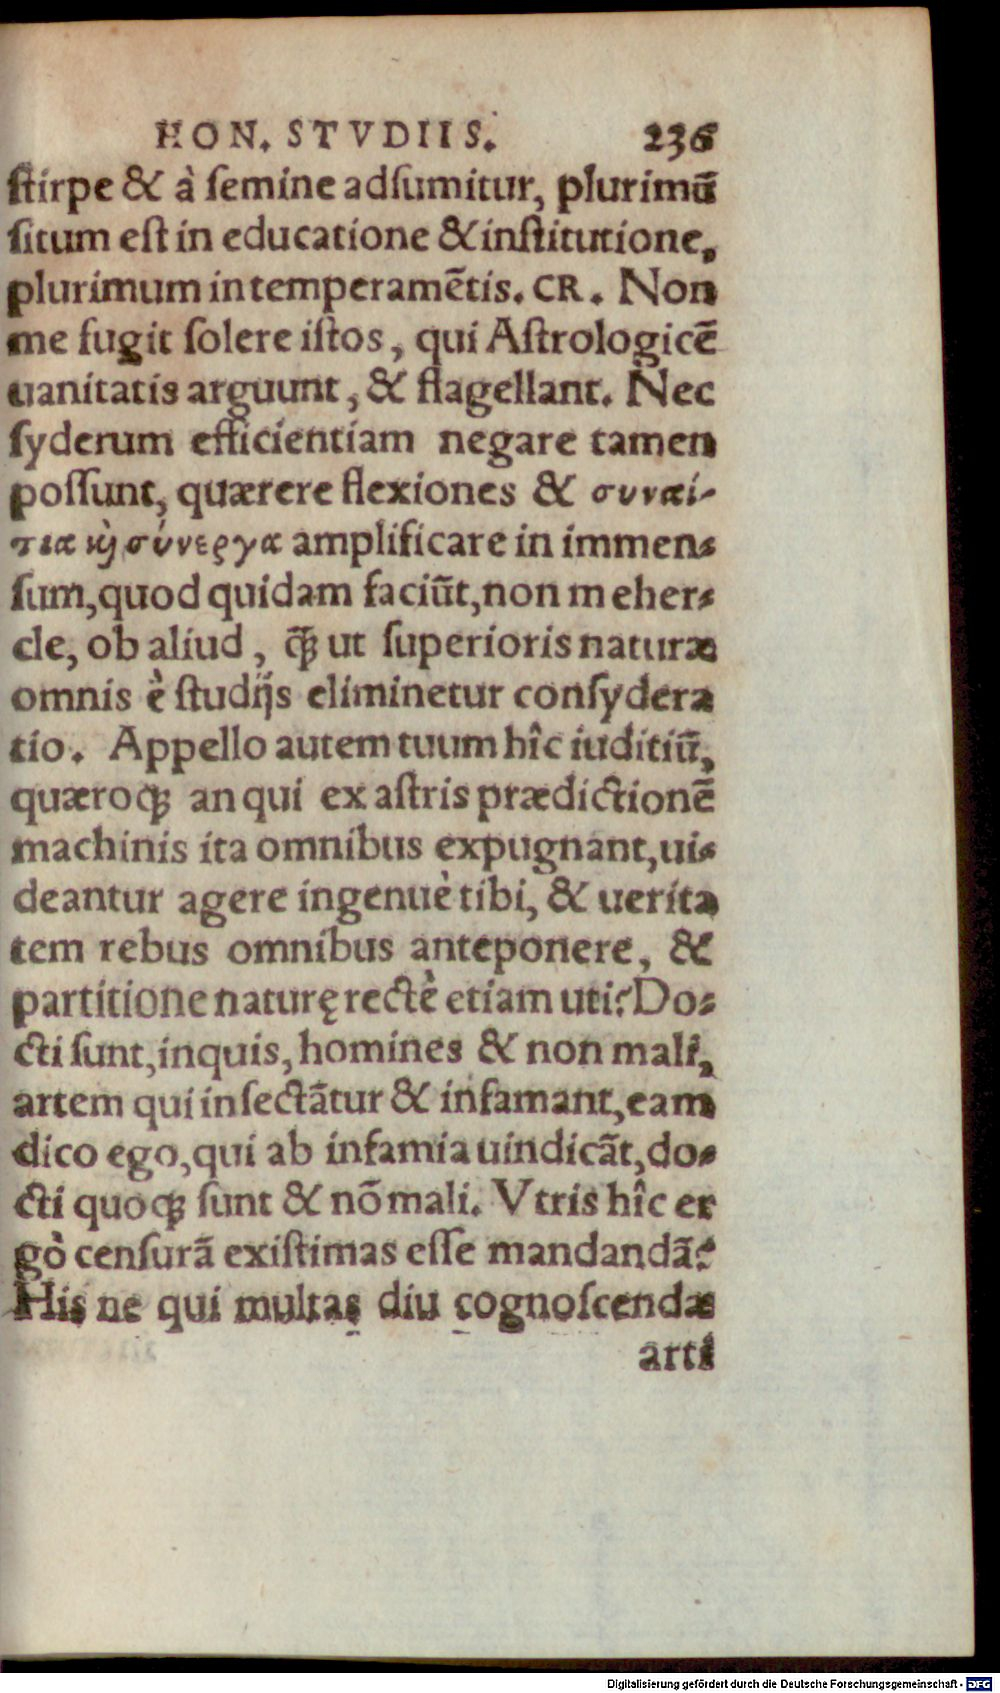 HON. STVDIIS. 236
ſtirpe & à ſemine adſumitur, plurimū
ſitum eſt in educatione & inſtitutione,
plurimum in temperamētis. CR. Non
me fugit ſolere iſtos, qui Aſtrologicē
uanitatis arguunt, & flagellant. Nec
ſyderum efficientiam negare tamen
poſſunt, quærere flexiones & συναί-
τια ϗ̀ σύνεργα amplificare in immen-
ſum, quod quidam faciūt, non meher-
cle, ob aliud, ꝗ̄ꝫ ut ſuperioris naturæ
omnis è ſtudijs eliminetur conſydera
tio. Appello autem tuum hîc iuditiū,
quæroqꝫ an qui ex aſtris prædictionē
machinis ita omnibus expugnant, ui-
deantur agere ingenuè tibi, & uerita
tem rebus omnibus anteponere, &
partitione naturę rectè etiam uti? Do-
cti ſunt, inquis, homines & non mali,
artem qui inſectātur & infamant, eam
dico ego, qui ab infamia uindicāt, do-
cti quoqꝫ ſunt & nō mali. Vtris hîc er
gò cenſurā exiſtimas eſſe mandandā?
His ne qui multas diu cognoſcendæ
arti
Digitalisierung gefördert durch die Deutsche Forschungsgemeinschaft - DFG